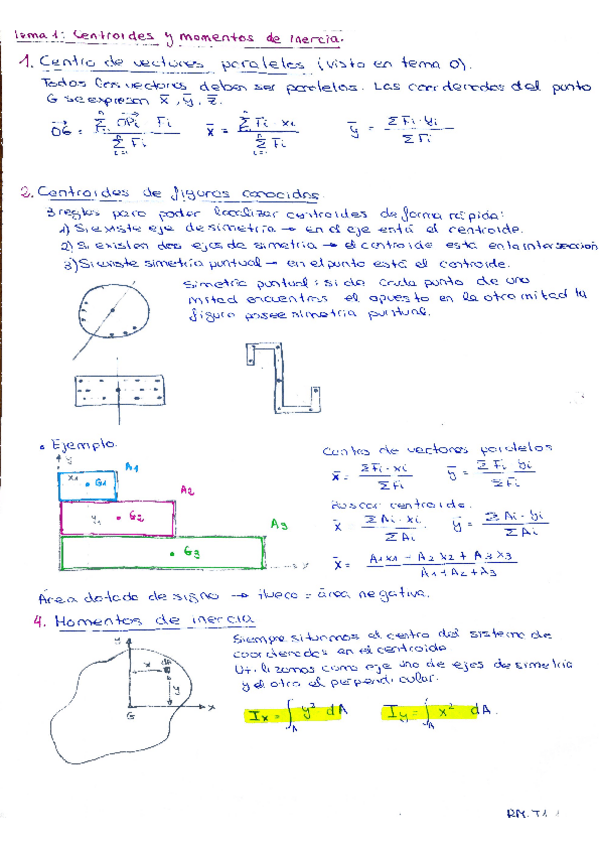 Tema 1: Centroides y momentos de inercia.
1. Centro de vectores paralelos (visto en tema 0).
Todos los vectores deben ser paralelos. Las coordenadas del punto
G se expresan x̄, ȳ, z̄.
x̄ = Σ Fi · xi / Σ Fi    ȳ = Σ Fi · yi / Σ Fi
2. Centroides de figuras conocidas.
3 reglas para poder localizar centroides de forma rápida:
1) Si existe eje de simetría → en el eje está el centroide.
2) Si existen dos ejes de simetría → el centroide está en la intersección
3) Si existe simetría puntual → en el punto está el centroide.
Simetría puntual: si de cada punto de una
mitad encuentras el opuesto en la otra mitad la
figura posee simetría puntual.
• Ejemplo.
y
x1 • G1 A1
y1 • G2 A2
• G3 A3
x
Centro de vectores paralelos
x̄ = Σ Fi · xi / Σ Fi    ȳ = Σ Fi · yi / Σ Fi
Buscar centroide.
x̄ = Σ Ai · xi / Σ Ai    ȳ = Σ Ai · yi / Σ Ai
x̄ = A1x1 + A2x2 + A3x3 / A1 + A2 + A3
Área dotada de signo → hueco = área negativa.
4. Momentos de inercia
Siempre situamos el centro del sistema de
coordenadas en el centroide
Utilizamos como eje uno de ejes de simetría
y el otro el perpendicular.
y
x
y
G
x
Ix = ∫A y² dA    Iy = ∫A x² dA.